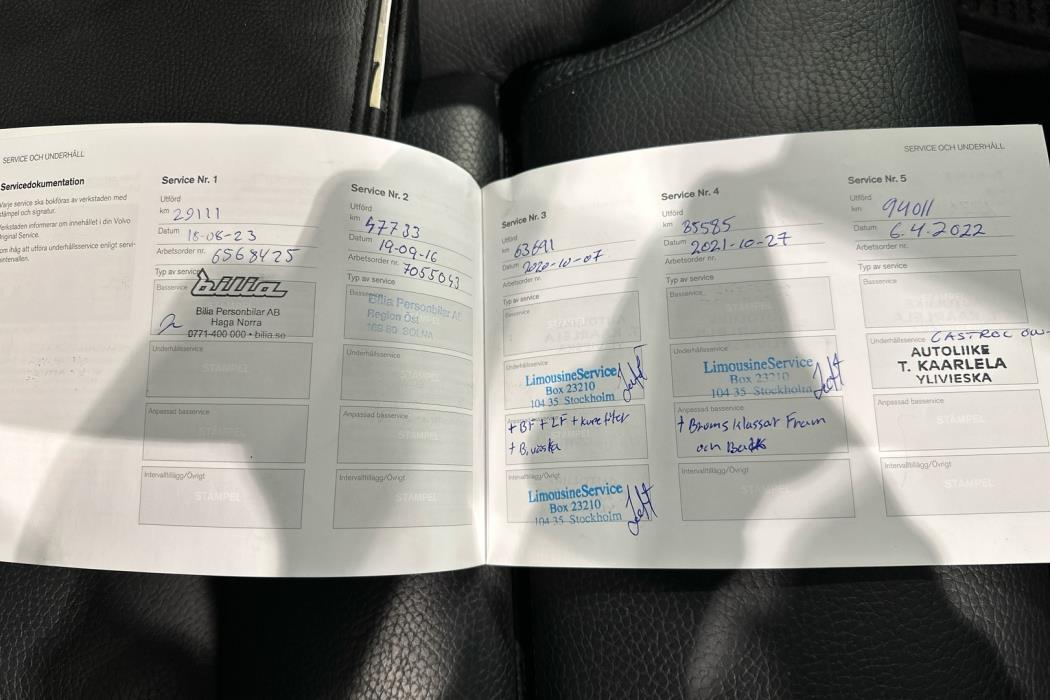 SERVICE OCH UNDERHÅLL
Servicedokumentation
Varje service ska bokföras av verkstaden med
stämpel och signatur.
Verkstaden informerar om innehållet i din Volvo
Original Service.
Kom ihåg att utföra underhållsservice enligt servi-
ceintervallen.
Service Nr. 1
Utförd
km 29111
Datum 18-08-23
Arbetsorder nr. 6568425
Typ av service
Basservice
bilia
Bilia Personbilar AB
Haga Norra
0771-400 000 • bilia.se
Underhållsservice
STÄMPEL
Anpassad basservice
STÄMPEL
Intervalltillägg/Övrigt
STÄMPEL
Service Nr. 2
Utförd
km 47733
Datum 19-09-16
Arbetsorder nr. 7055043
Typ av service
Basservice
Bilia Personbilar AB
Region Öst
169 80 SOLNA
Underhållsservice
STÄMPEL
Anpassad basservice
STÄMPEL
Intervalltillägg/Övrigt
STÄMPEL
Service Nr. 3
Utförd
km 63691
Datum 2020-10-07
Arbetsorder nr.
Typ av service
Basservice
Underhållsservice
LimousineService
Box 23210
104 35 Stockholm
Anpassad basservice
+ BF + LF + kupefilter
+ B.väska
LimousineService
Box 23210
104 35 Stockholm
Service Nr. 4
Utförd
km 85585
Datum 2021-10-27
Arbetsorder nr.
Typ av service
Basservice
STÄMPEL
Underhållsservice
LimousineService
Box 23210
104 35 Stockholm
Anpassad basservice
+ Broms klassar Fram
och Back
Intervalltillägg/Övrigt
STÄMPEL
SERVICE OCH UNDERHÅLL
Service Nr. 5
Utförd
km 94011
Datum 6.4.2022
Arbetsorder nr.
Typ av service
Basservice
STÄMPEL
Underhållsservice CASTROL OW-
AUTOLIIKE
T. KAARLELA
YLIVIESKA
Anpassad basservice
STÄMPEL
Intervalltillägg/Övrigt
STÄMPEL